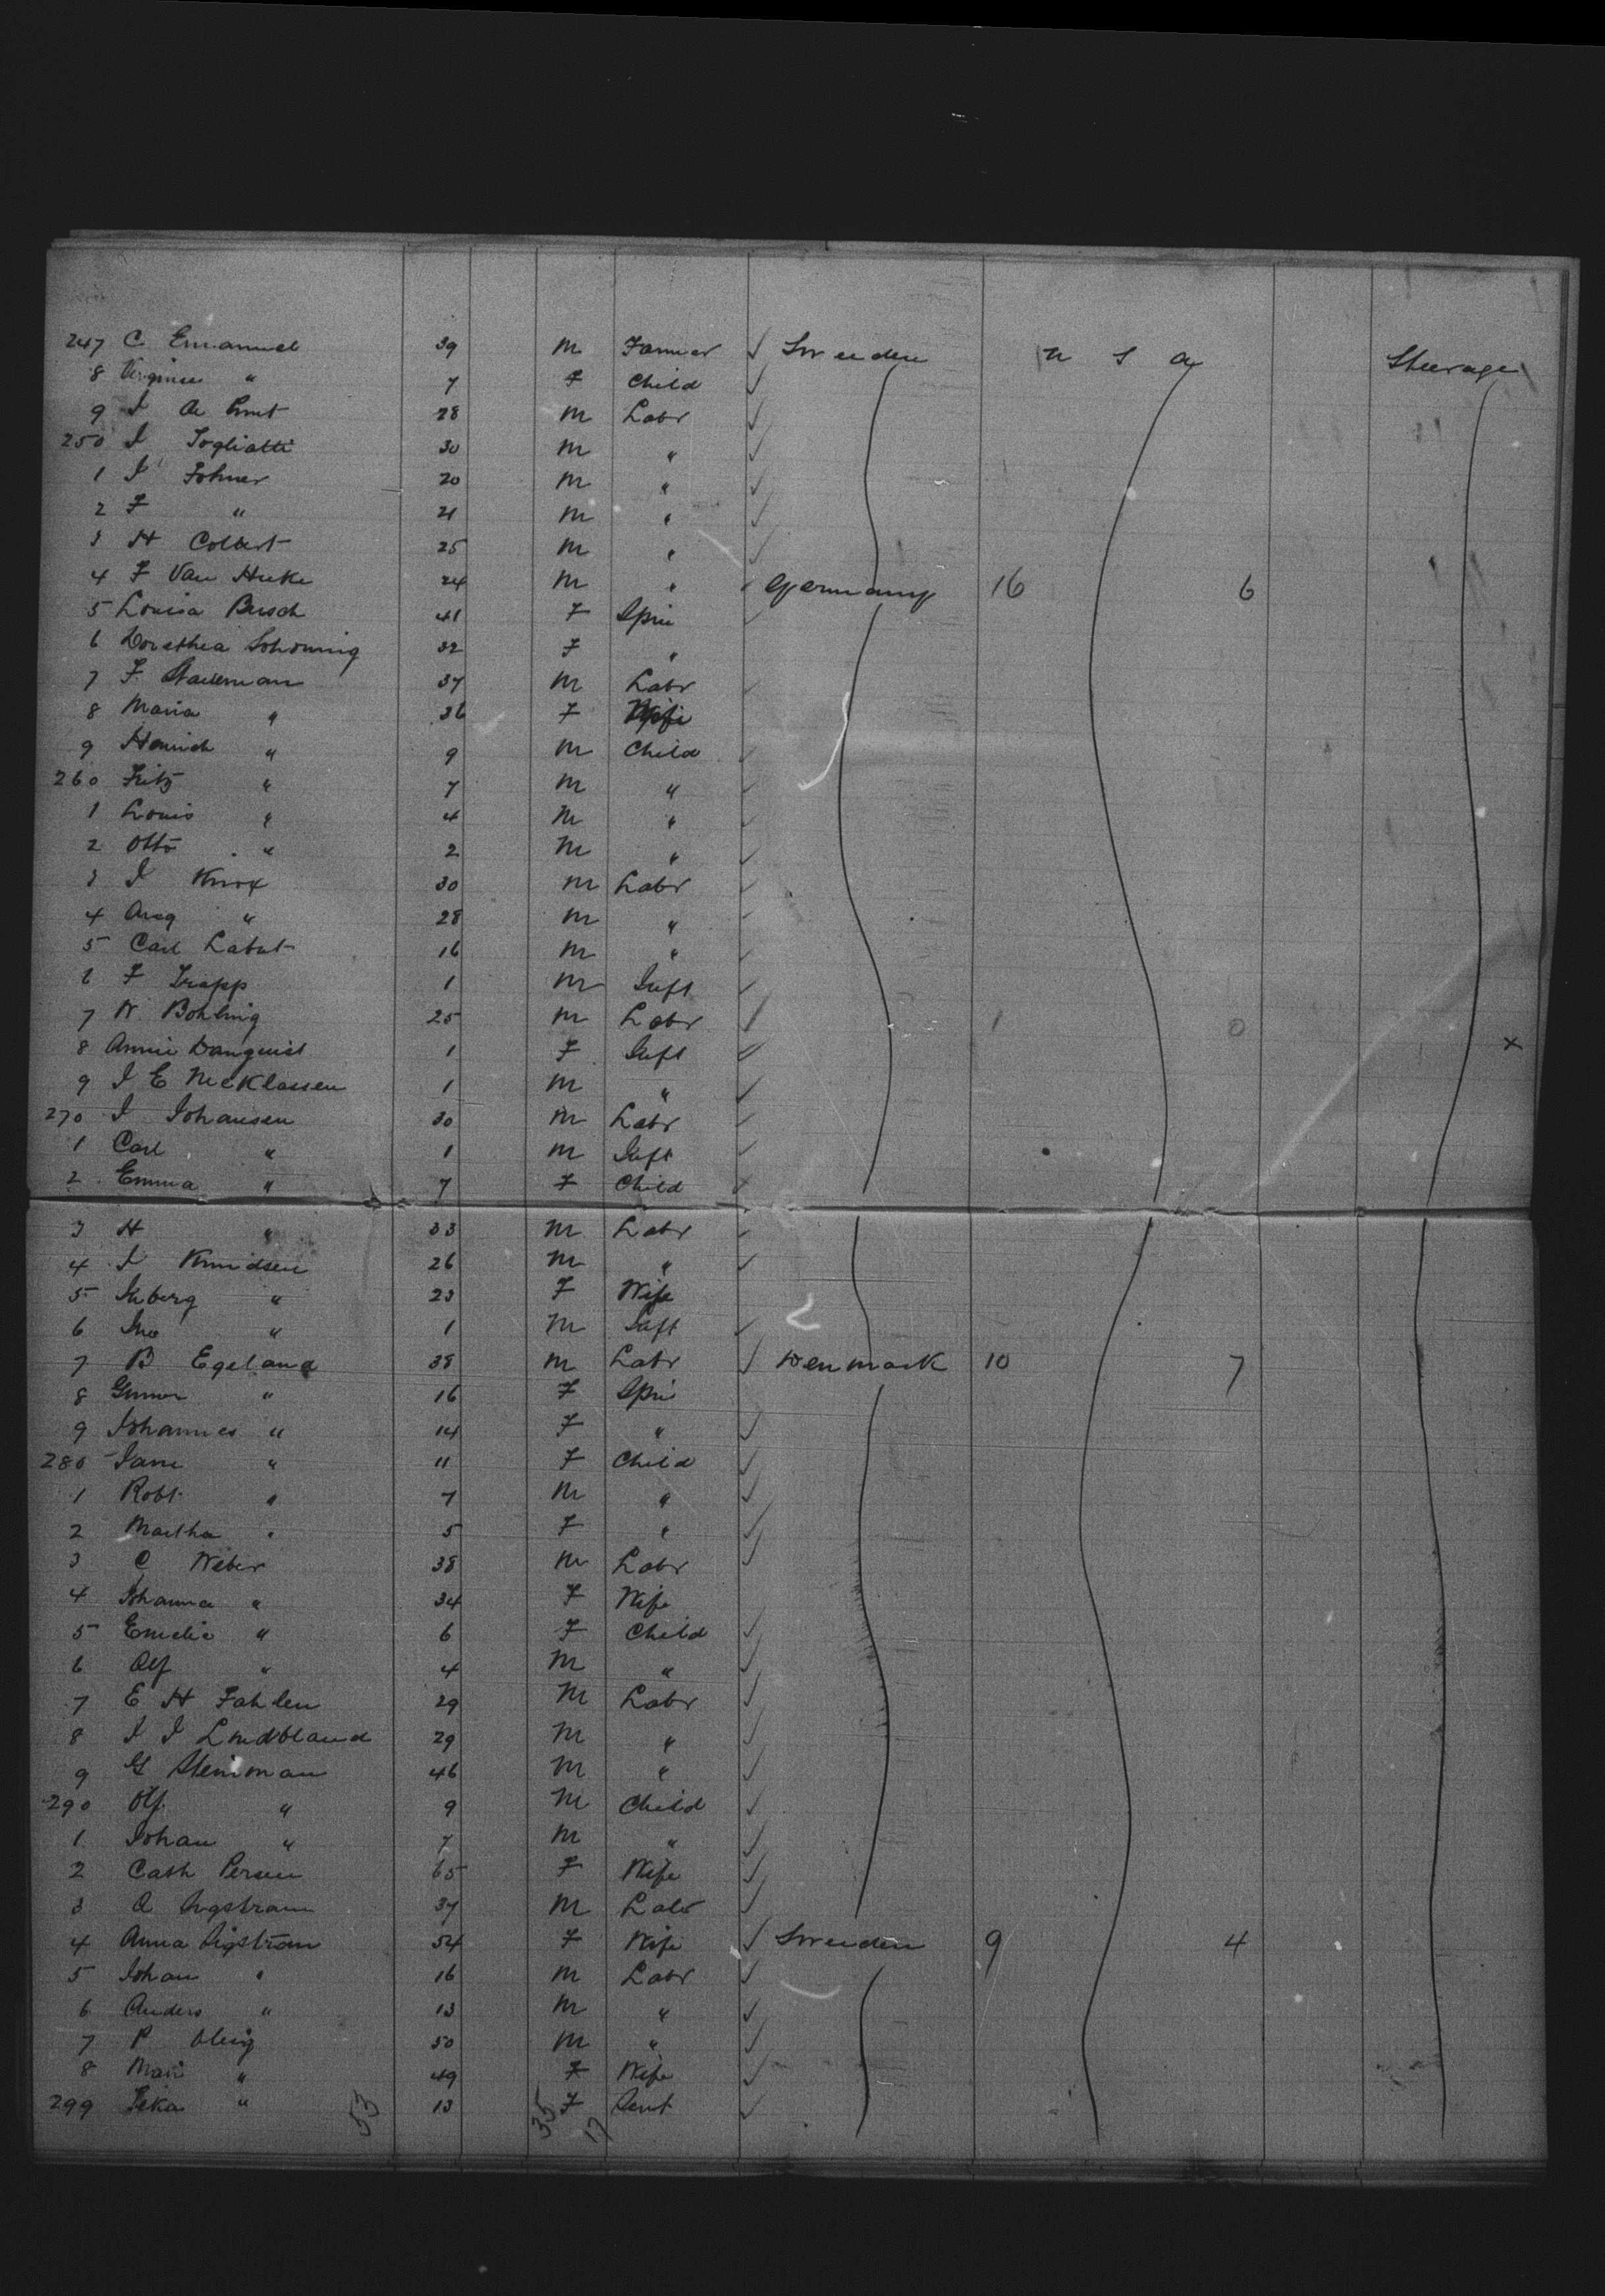 247 C Emanuel 39 M Farmer ✓ Sweeden U S A Steerage
8 Virginie " 7 F Child ✓
9 J 28 M Labr ✓
250 J Togliatti 30 M " ✓
1 J Fohner 20 M " ✓
2 F " 21 M " ✓
3 H Colbert 25 M " ✓
4 F Van Hecke 24 M " ✓ Germany 16 6
5 Louisa Busch 41 F Spin ✓
6 Dorethea Schoming 32 F "
7 F 37 M Labr ✓
8 Maria " 36 F Wife
9 Heinrich " 9 M Child ✓
260 Fritz " 7 M " ✓
1 Louis " 4 M " ✓
2 Otto " 2 M " ✓
3 J Knox 30 M Labr ✓
4 Aug " 28 M " ✓
5 Carl Labat 16 M " ✓
6 F Trapp 1 M Inft ✓
7 W. Bohling 25 M Labr ✓ 1 0
8 Annie Danquist 1 F Inft ✓ x
9 J E McKlassen 1 M " ✓
270 J Johansen 30 M Labr ✓
1 Carl " 1 M Inft ✓
2 Emma " 7 F Child ✓
3 H " 33 M Labr ✓
4 J Knudsen 26 M " ✓
5 " 23 F Wife
6 Ino " 1 M Inft ✓
7 B Egeland 38 M Labr ✓ Denmark 10 7
8 Gunner " 16 F Spin
9 Johannes " 14 F " ✓
280 Jane " 11 F Child ✓
1 Robt " 7 M " ✓
2 Martha " 5 F " ✓
3 C Weber 38 M Labr ✓
4 Johanna " 34 F Wife
5 Emelie " 6 F Child ✓
6 Olf " 4 M " ✓
7 E H Fahlen 29 M Labr ✓
8 J J Lindbland 29 M " ✓
9 G Steinman 46 M " ✓
290 Olf " 9 M Child ✓
1 Johan " 7 M " ✓
2 Cath Persen 65 F Wife ✓
3 A Angstrom 37 M Labr ✓
4 Anna Sigstrom 54 F Wife ✓ Sweeden 9 4
5 Johan " 16 M Labr ✓
6 Anders " 13 M " ✓
7 P 50 M " ✓
8 Mari " 49 F Wife ✓
299 " 13 F Servt ✓
53 35 17